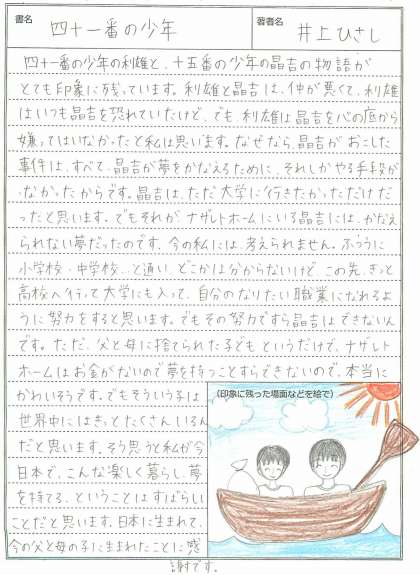 書名 四十一番の少年 著者名 井上ひさし
四十一番の少年の利雄と、十五番の少年の晶吉の物語が
とても印象に残っています。利雄と晶吉は、仲が悪くて、利雄
はいつも晶吉を恐れていたけど、でも利雄は晶吉を心の底から
嫌ってはいなかったと私は思います。なぜなら、晶吉がおこした
事件は、すべて、晶吉が夢をかなえるために、それしかやる手段が
なかったからです。晶吉は、ただ大学に行きたかっただけだ
ったと思います。でもそれが、ナザレトホームにいる晶吉には、かなえ
られない夢だったのです、今の私には、考えられません。ふつうに
小学校・中学校…と通い、どこかは分からないけど、この先、きっと
高校へ行って大学にも入って、自分のなりたい職業になれるよ
うに努力をすると思います。でもその努力ですら晶吉はできないん
です。ただ、父と母に捨てられた子どもというだけで、ナザレト
ホームはお金がないので夢を持つことすらできないので、本当に
かわいそうです。でもそういう子は
世界中にはきっとたくさんいるん
だと思います。そう思うと私が今
日本で、こんな楽しく暮らし、夢
を持てる、ということはすばらしい
ことだと思います。日本に生まれて、
今の父と母の子に生まれたことに感
謝です。
(印象に残った場面などを絵で)